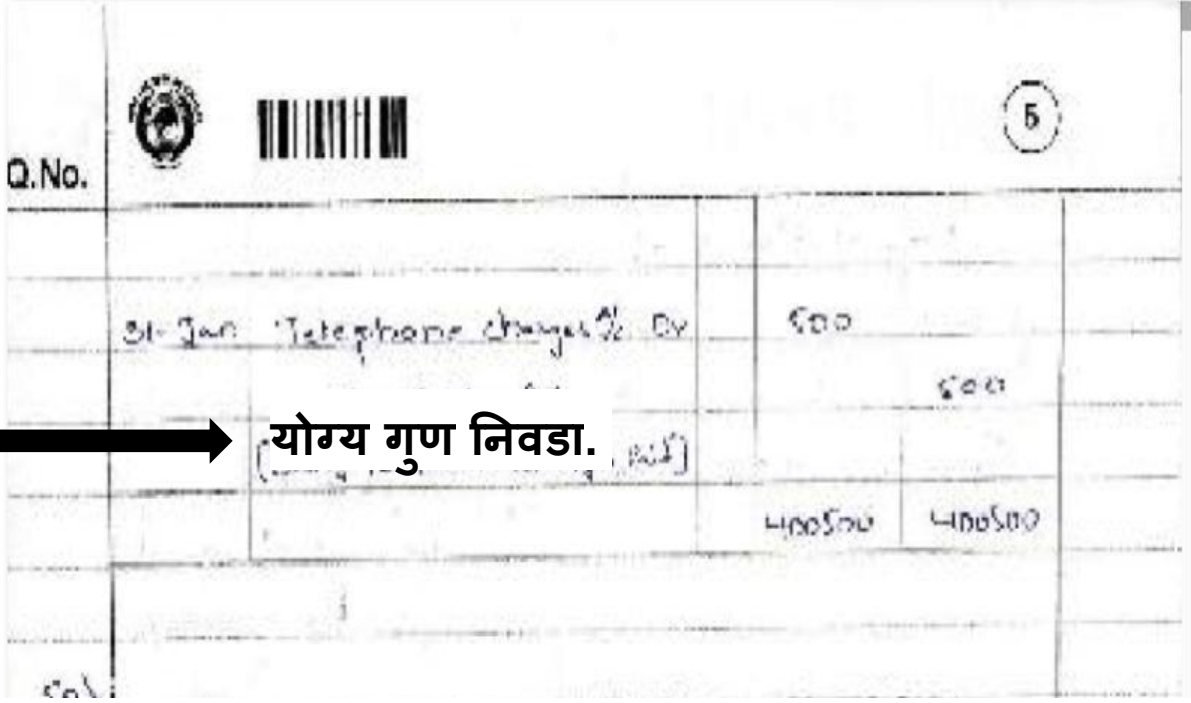 5
Q.No.
31-Jan Telephone charges A/c Dr 500
500
योग्य गुण निवडा.
Paid]
400500 400500